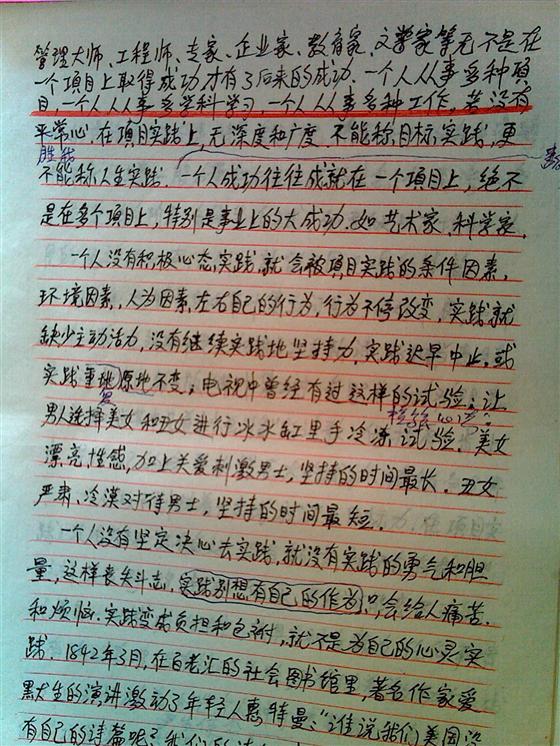 管理大师、工程师、专家、企业家、教育家、文学家等无不是在
一个项目上取得成功才有了后来的成功.一个人从事多种项
目,一个人从事多学科学习,一个人从事多种工作,若没有
平常心,在项目实践上,无深度和广度,不能称目标实践,更
胜我
不能称人生实践.一个人成功往往成就在一个项目上,绝不
是在多个项目上,特别是事业上的大成功.如艺术家、科学家,
一个人没有积极心态实践,就会被项目实践的条件因素,
环境因素,人为因素左右自己的行为,行为不停改变,实践就
缺少主动活力,没有继续实践地坚持力,实践迟早中止.或
实践重地原地不变,电视中曾经有过这样的试验:让
复
男人选择美女和丑女进行冰水缸里手冷冻试验.美女
漂亮性感,加上关爱刺激男士,坚持的时间最长.丑女
严肃、冷漠对待男士,坚持的时间最短.
一个人没有坚定决心去实践,就没有实践的勇气和胆
量,这样丧失斗志,实践别想有自己的作为,会给人痛苦.
和烦恼.实践变成负担和包袱,就不是为自己的心灵实
践.1842年3月,在百老汇的社会图书馆里,著名作家爱
默生的演讲激动了年轻人惠特曼:“谁说我们美国没
有自己的诗篇呢?我们的